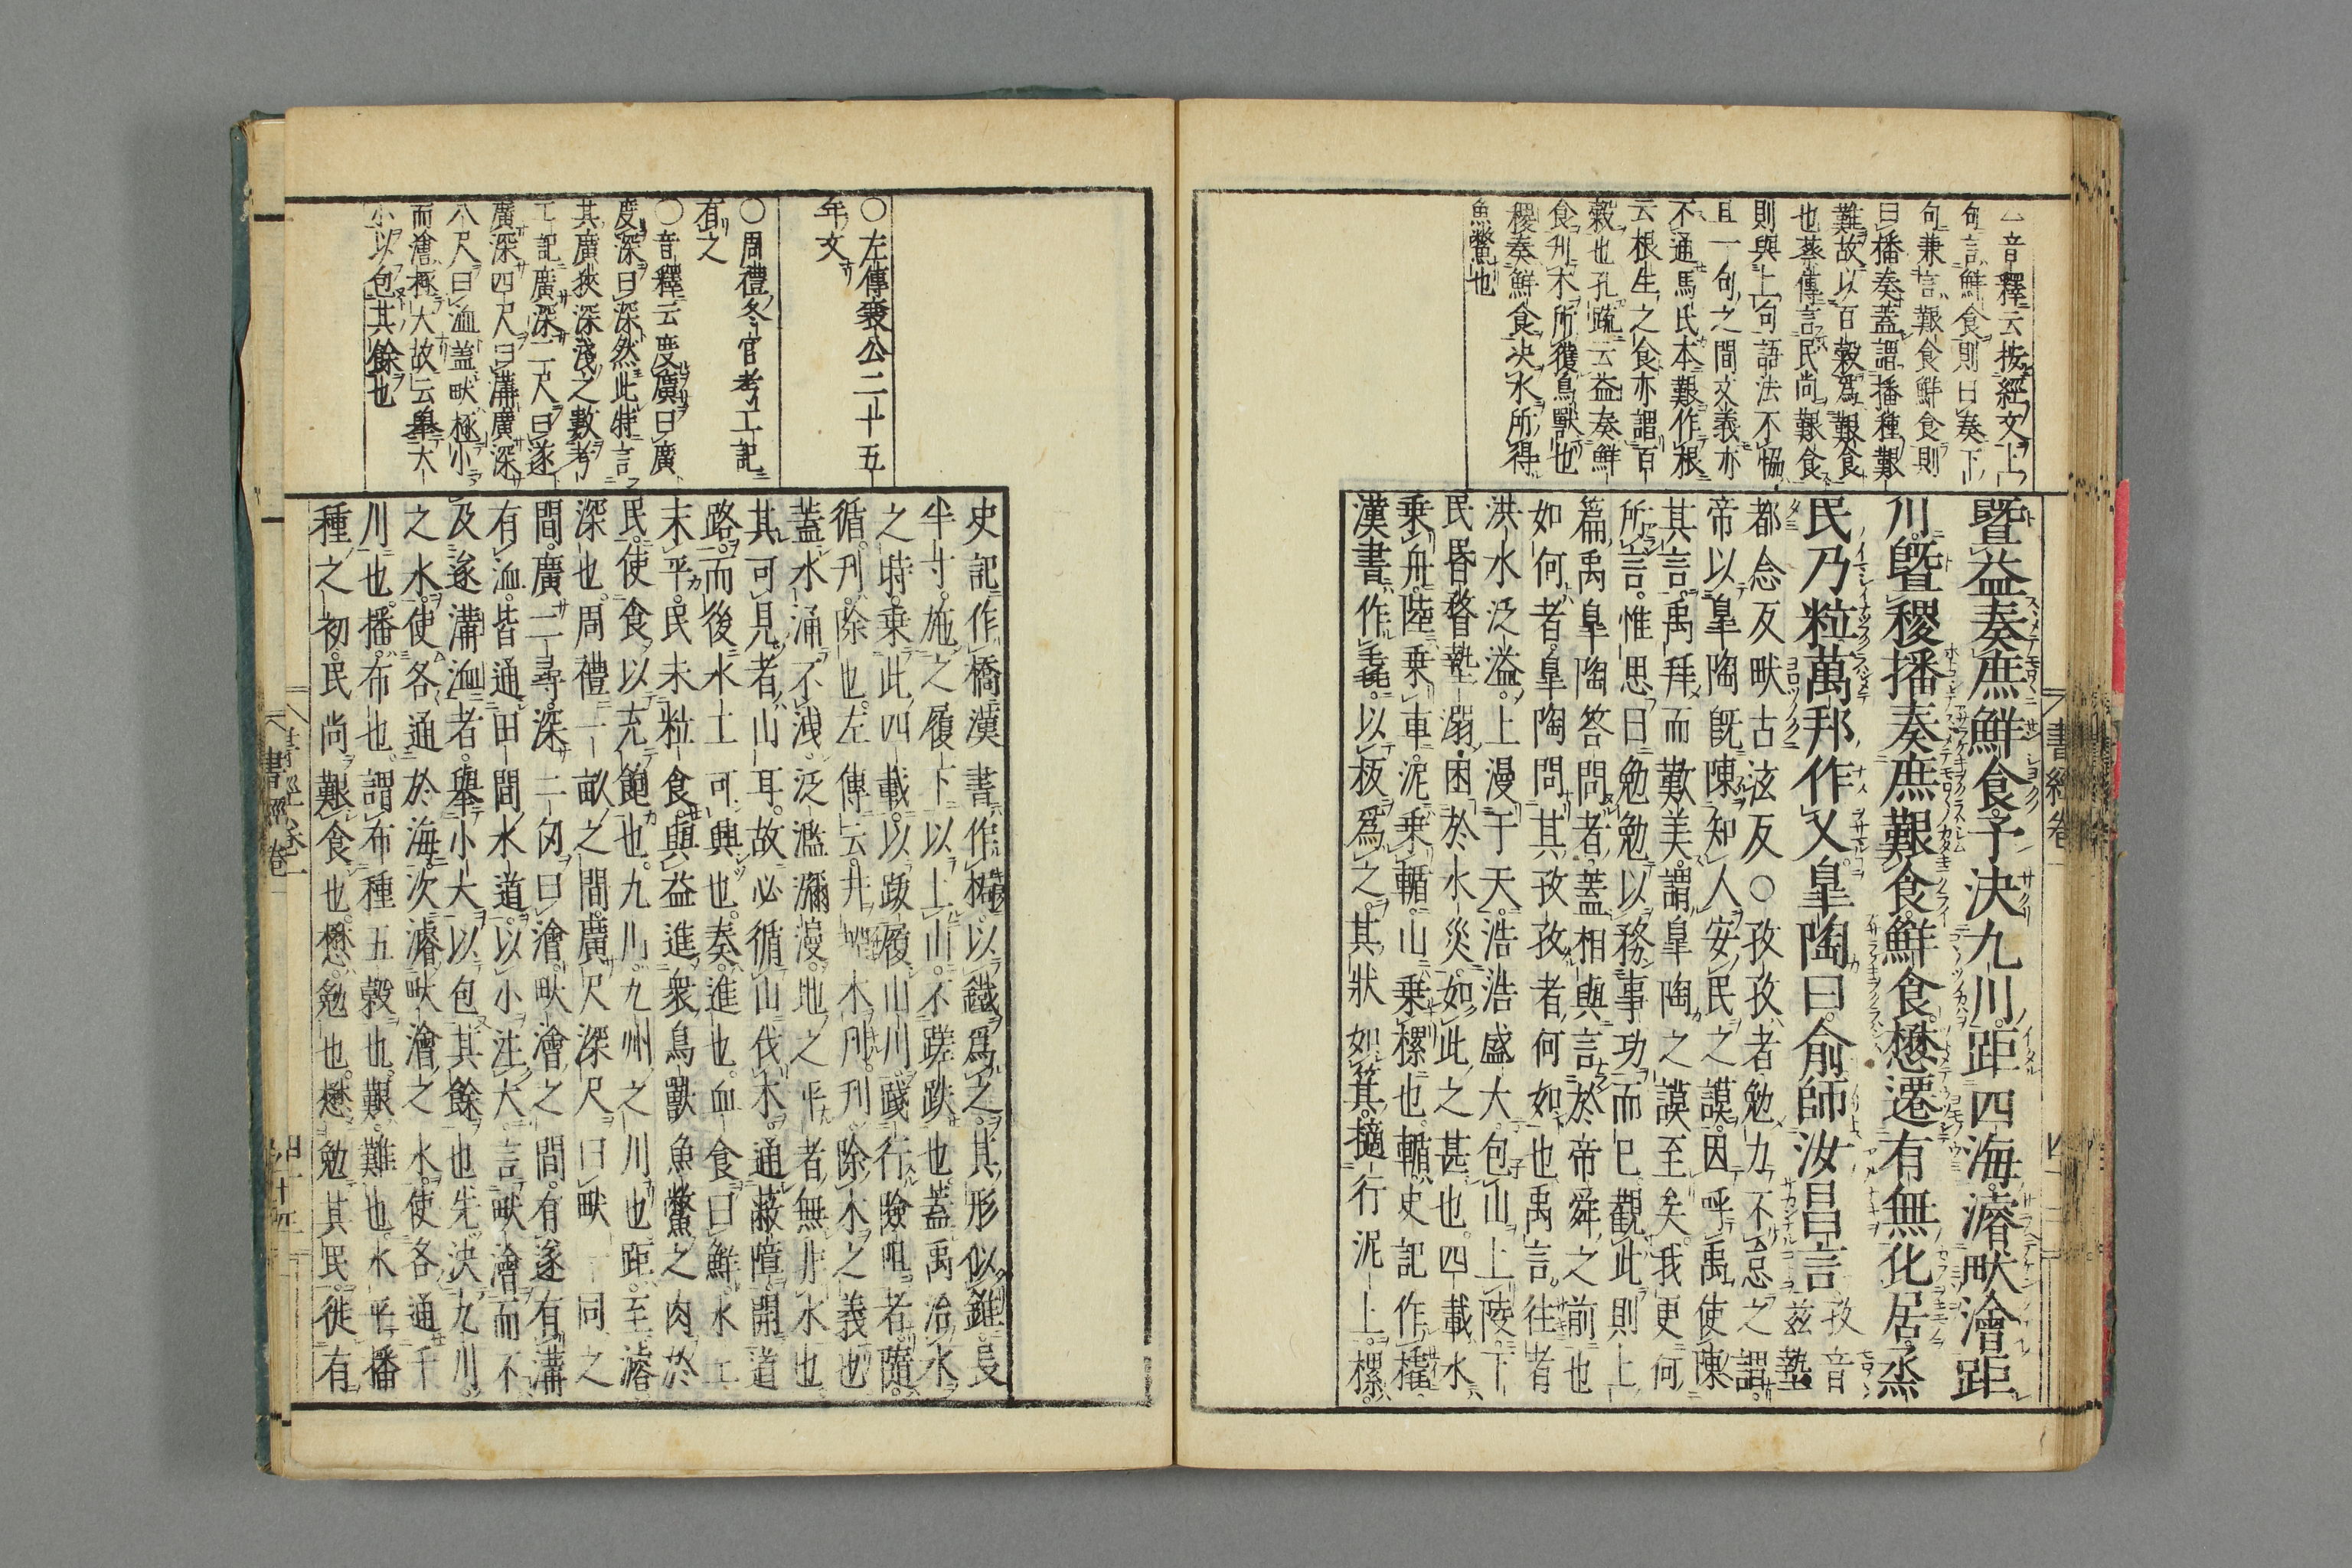 一音釋云按經文上
句言鮮食則曰奏下
句兼言艱食鮮食則
曰播奏蓋謂播種艱
難故以百穀爲艱食
也蔡傳言民尚艱食
則與上句語法不恊
且一句之間文義亦
不通馬氏本艱作根
云根生之食亦謂百
穀也孔疏云益奏鮮
食刋木所獲鳥獸也
稷奏鮮食决水所得
魚鱉也
暨益奏庶鮮食予决九川距四海濬畎澮距
川曁稷播奏庶艱食鮮食懋遷有無化居烝
民乃粒萬邦作乂皐陶曰俞師汝昌言孜音茲墊
都念反畎古泫反○孜孜者勉力不怠之謂
帝以皐陶旣陳知人安民之謨因呼禹使陳
其言禹拜而歎美謂皐陶之謨至矣我更何
所言惟思日勉勉以務事功而已觀此則上
篇禹皐陶答問者蓋相與言於帝舜之前也
如何者皐陶問其孜孜者何如也禹言往者
洪水泛溢上漫于天浩浩盛大包山上陵下
民昏瞀墊溺困於水災如此之甚也四載水
乗舟陸乗車泥乗輴山乗樏也輴史記作橇
漢書作毳以板爲之其狀如箕擿行泥上樏
書經卷一
○左傳襄公二十五
年文
○周禮冬官考工記
有之
○音釋云度廣曰廣
度深曰深然此特言
其廣狹深淺之數考
工記廣深二尺曰遂
廣深四尺曰溝廣深
八尺曰洫蓋畎極小
而澮極大故云擧大
小以包其餘也
史記作橋漢書作梮以鐵爲之其形似錐長
半寸施之履下以上山不蹉跌也蓋禹治水
之時乗此四載以跋履山川踐行險阻者隨
循刋除也左傳云井堙木刋刋除木之義也
蓋水涌不洩泛濫瀰漫地之平者無非水也
其可見者山耳故必循山伐木通蔽障開道
路而後水土可興也奏進也血食曰鮮水土
未平民未粒食與益進衆鳥獸魚鱉之肉於
民使食以充飽也九川九州之川也距至濬
深也周禮一畝之間廣尺深尺曰畎一同之
間廣二尋深二仞曰澮畎澮之間有遂有溝
有洫皆通田間水道以小注大言畎澮而不
及遂溝洫者擧小大以包其餘也先决九川
之水使各通於海次濬畎澮之水使各通于
川也播布也謂布種五穀也艱難也水平播
種之初民尚艱食也懋勉也懋勉其民徙有
書經卷一